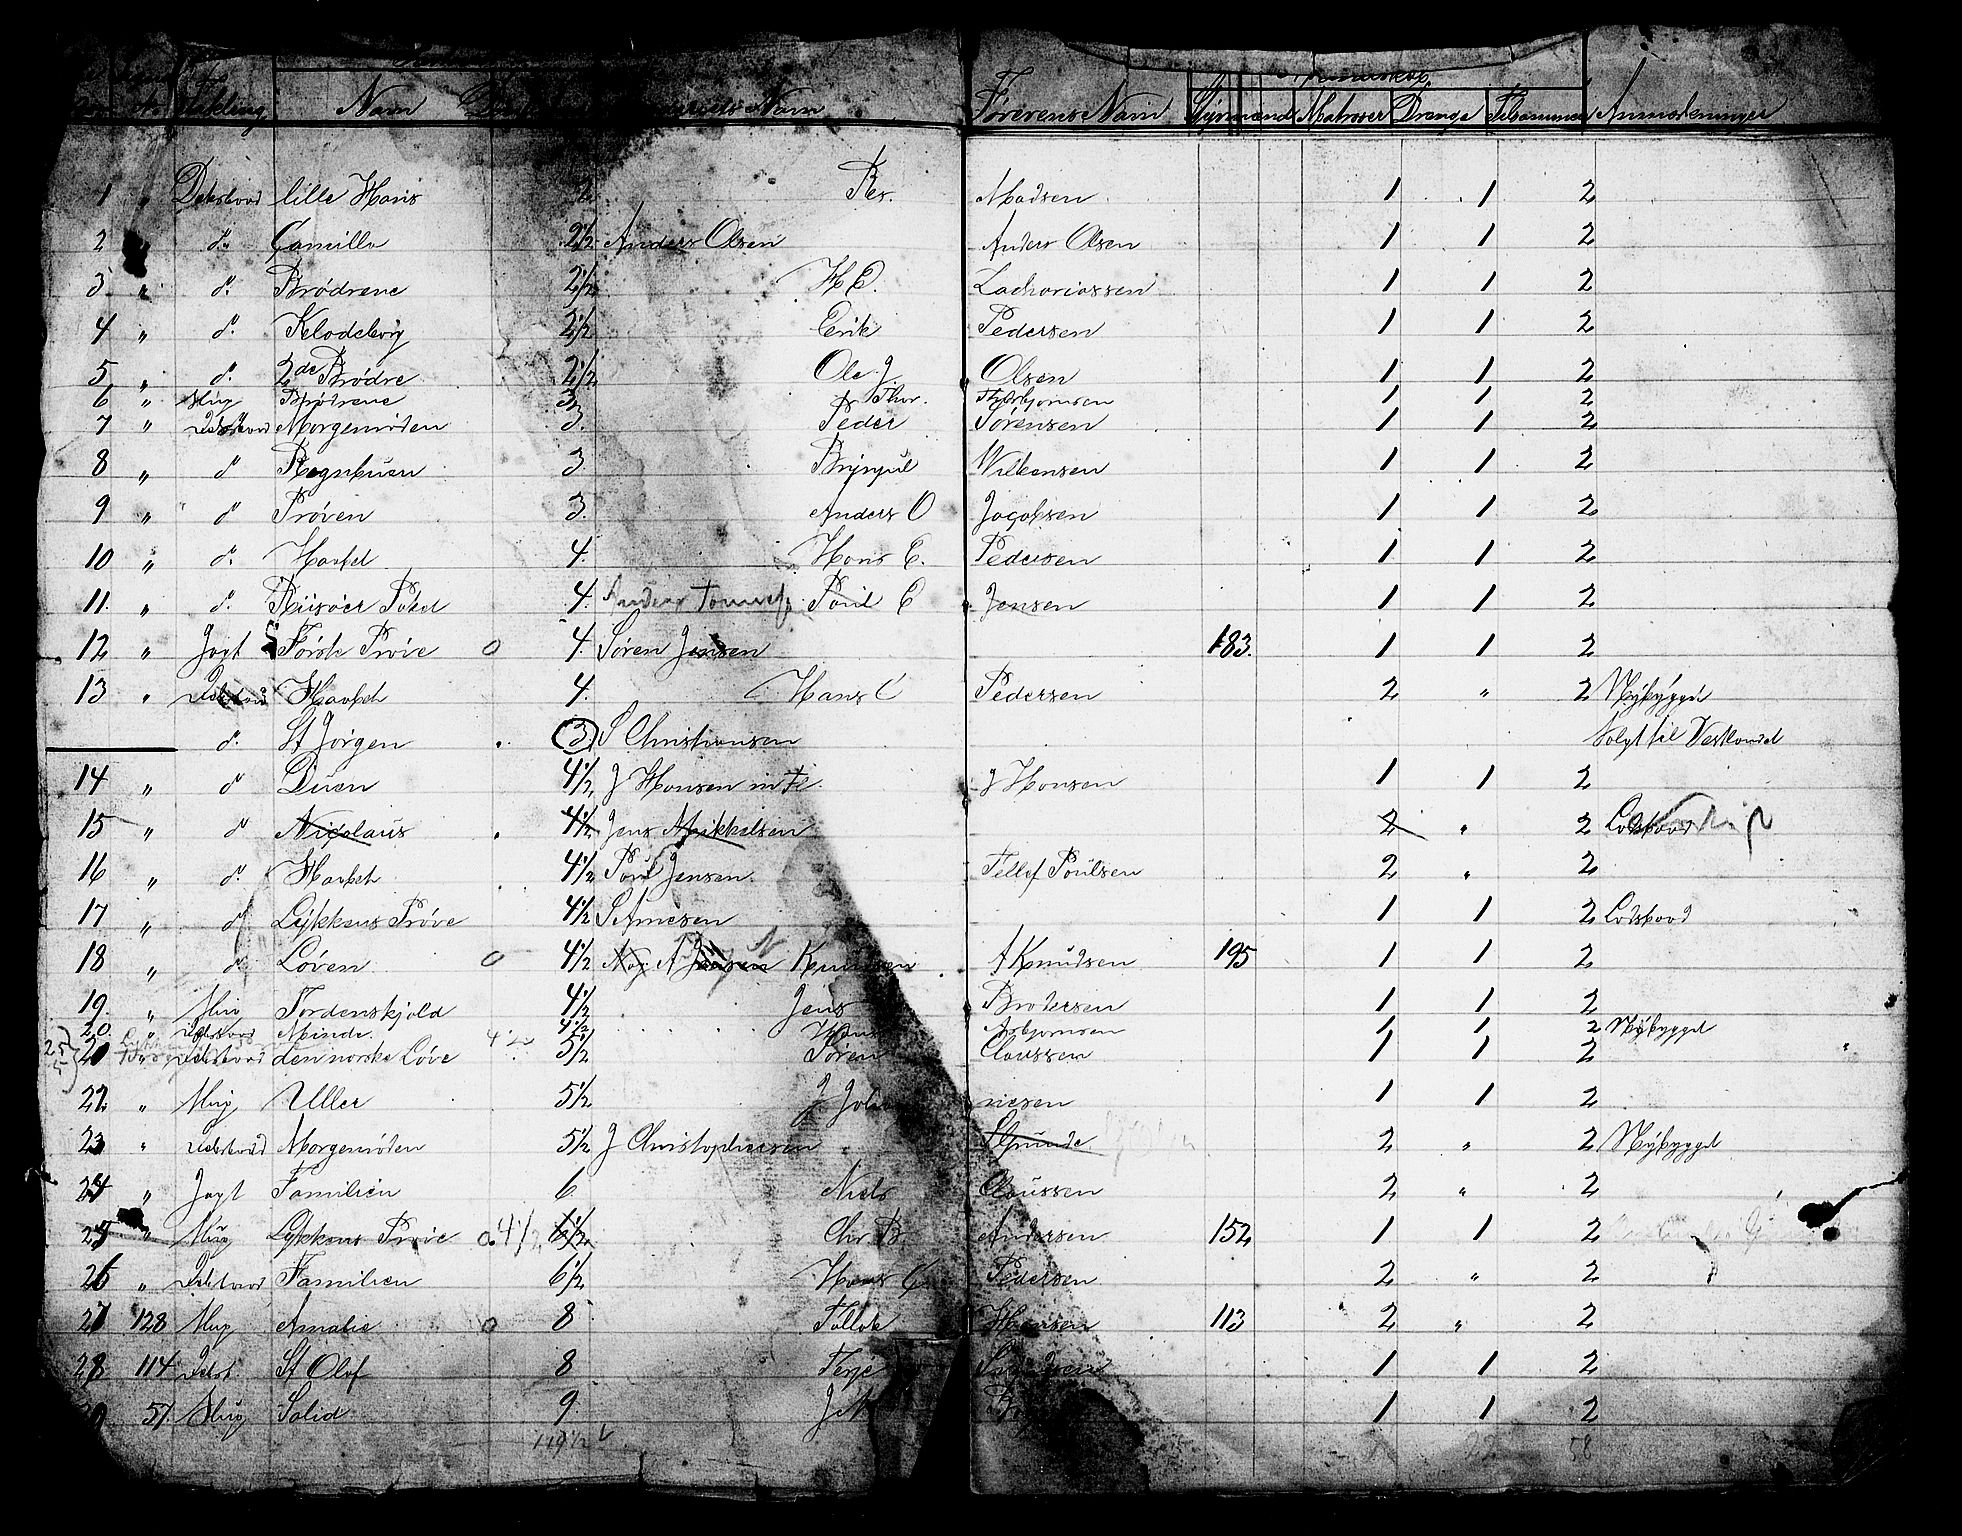 Takling Navn Nam Førerens Navn Styrmænd Matroser Drenge Tilsammen Anmærkninger
1 " Deksbaad lille Hans 2 Ber. Madsen 1 1 2
2 " do. Camilla 2½ Anders Olsen Anders Olsen 1 1 2
3 " do. Brødrene 2½ H C. Zachariassen 1 1 2
4 " do. Klodeborg 2½ Erik Pedersen 1 1 2
5 " do. 2de Brødre 2½ Ole J. Olsen 1 1 2
6 " Slup Brødrene 3 Thor. Thorbjørnsen 1 1 2
7 " Deksbaad Morgenrøden 3. Peder Sørensen 1 1 2
8 " do Regnbuen 3 Brynjul Wilkensen 1 1 2
9 " do Prøven 3. Anders O Jacobsen 1 1 2
10 " do. Havfed 4. Hans C. Pedersen 1 1 2
11. " do. Riisøer Paket 4. Anders Poul C Jensen 1 1 2
12 " Jagt Første Prøve 0 4. Søren Jensen 183. 1 1 2
13 " Deksbaad Havket 4. Hans C Pedersen 2 " 2 Nybygget
do. St Jørgen 3 S Christiansen Solgt til Vestlandet
14 " do Duen 4½ J Hansen J Hansen 1 1 2
15 " do Nicolaus 4½ Jens Mikkelsen 2 " 2 Lodsbaad
16 " do. Havket 4½ Poul Jensen. Tellef Poulsen 2 " 2
17 " do Lykkens Prøve 4½ S Arnesen 1 1 2 Lodsbaad
18 " do Løven 0 4½ A Jensen N Knudsen A Knudsen 195 1 1 2
19. " Slup Tordenskjold 4½ Jens Brodersen 1 1 2
20 " Deksbaad Minde. 4½ Hans Asbjørnsen 1 1 2 Nybygget
21 " Deksbaad den norske Løve 5½ Søren Claussen 1 1 2
22. " Slup Uller 5½ J Johan nesen 1 1 2
23 " Deksbaad Morgenrøden 5½ J Christophersen S Gunde 2 " 2 Nybygget
24 " Jagt Familien 6 Niels Claussen 2 " 2
25 " Slup Lykkens Prøve 0 4½ 6½ Chr B. Andersen 152 1 1 2
26 " Deksbaad Familien 6½ Hans C Pedersen 2 " 2
27 128 Slup Amalie 0 8 Tallak Hansen 113 2 " 2
28 114 Deksb. St Olaf 8 Terje 1 1 2
57 Slup Solid 9. 1 1 2
119½ 58